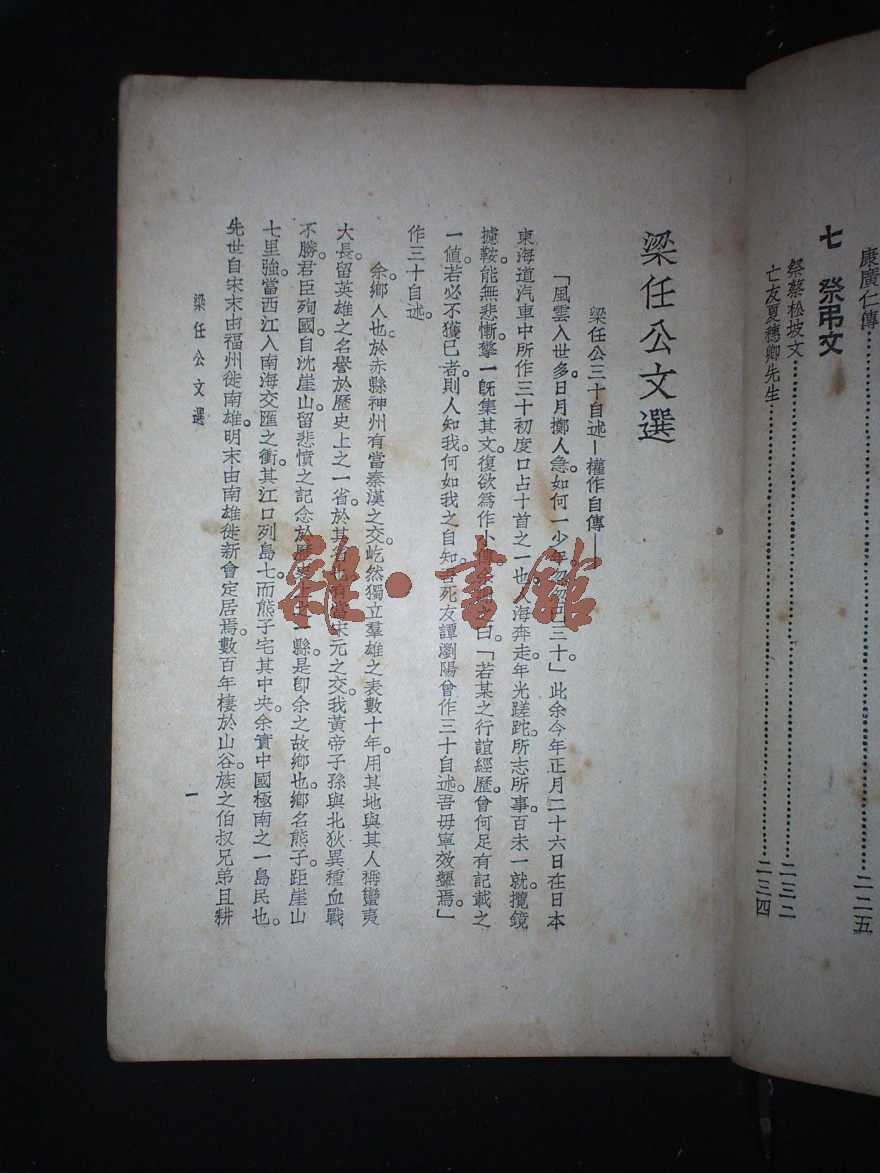 康廣仁傳……………………二二五
七 祭弔文
祭蔡松坡文……………………二三二
亡友夏穗卿先生……………………二三四
梁任公文選
梁任公三十自述—權作自傳—
「風雲入世多。日月擲人急。如何一少年。忽忽已三十。」此余今年正月二十六日在日本
東海道汽車中所作三十初度口占十首之一也。海奔走。年光蹉跎。所志所事。百未一就。攬鏡
據鞍。能無悲慚。擎一既集其文。復欲爲作小傳。之曰。「若某之行誼經歷。曾何足有記載之
一値。若必不獲已者。則人知我。何如我之自知。吾死友譚瀏陽曾作三十自述。吾毋寧效顰焉。」
作三十自述。
余鄉人也。於赤縣神州。有當秦漢之交。屹然獨立羣雄之表。數十年。用其地。與其人。稱蠻夷
大長。留英雄之名譽於歷史上之一省。於其省也。有當宋元之交。我黃帝子孫。與北狄異種血戰
不勝。君臣殉國。自沈崖山。留悲憤之記念於歷史上之一縣。是卽余之故鄉也。鄉名熊子。距崖山
七里強。當西江入南海交匯之衝。其江口列島七。而熊子宅其中央。余實中國極南之一島民也。
先世自宋末由福州徙南雄。明末由南雄徙新會。定居焉。數百年棲於山谷。族之伯叔兄弟。且耕
梁任公文選
一
雜·書館